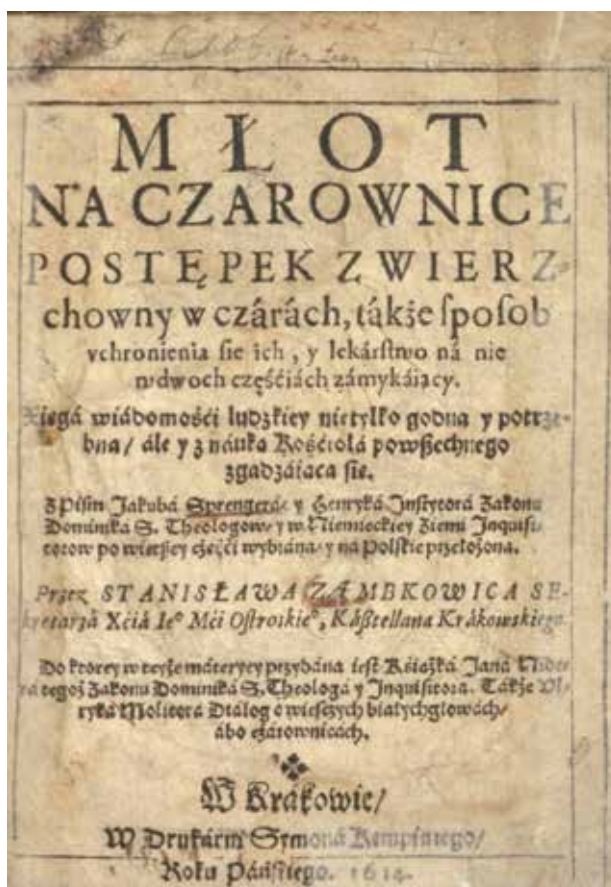 MŁOT
NA CZAROWNICE
POSTĘPEK ZWIERZ-
chowny w czárách, tákże ſpoſob
vchronienia ſie ich, y lekárſtwo ná nie
w dwoch częśćiách zámykáiący.
Xięgá wiádomośći ludzkiey nietylko godna y potrze-
bna/ ále y z nauką Kośćiołá powßechnego
zgadzáiąca ſie.
Z Piſm Jakubá Sprengerá/ y Henryká Inſtytorá Zakonu
Dominiká S. Theologow/ y w Niemieckiey Ziemi Inquiſi-
torow po wietßey częśći wybrána/ y na Polſkie przełożona.
Przez STANISŁAWA ZĄMBKOWICA SE-
kretarzá Xćiá Ieº Mći Oſtroſkieº, Káßtellaná Krákowſkiego.
Do ktorey w teyże máteryey przydána ieſt Kśiąßká Janá Nide-
rá tegoż Zakonu Dominiká S. Theologá y Inquiſitorá. Tákże Vl-
ryká Molitorá Dialog o wießczych białychgłowách/
ábo czárownicách.
W Krákowie/
W Drukárni Symoná Kempiniego/
Roku Páńſkiego. 1614.